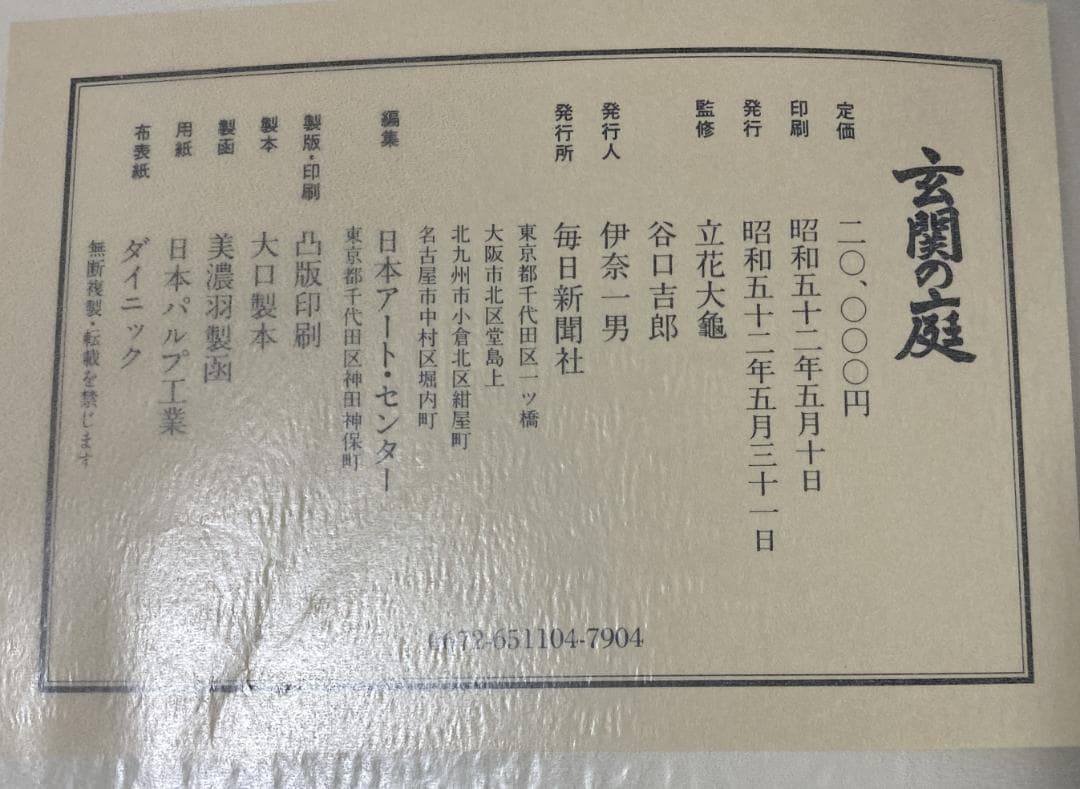 玄関の庭
定価 二〇、〇〇〇円
印刷 昭和五十二年五月十日
発行 昭和五十二年五月三十一日
監修 立花大亀
谷口吉郎
発行人 伊奈一男
発行所 毎日新聞社
東京都千代田区一ツ橋
大阪市北区堂島上
北九州市小倉北区紺屋町
名古屋市中村区堀内町
編集 日本アート・センター
東京都千代田区神田神保町
製版・印刷 凸版印刷
製本 大口製本
製函 美濃羽製函
用紙 日本パルプ工業
布表紙 ダイニック
無断複製・転載を禁じます
0672-651104-7904